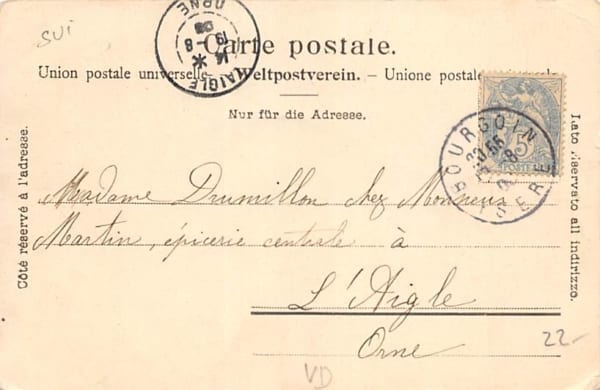 SUI
ORNE
19 8
14
03
* LAIGLE
Carte postale.
Union postale universelle. – Weltpostverein. – Unione postale
Nur für die Adresse.
Côté réservé à l'adresse.
Lato riservato all indirizzo.
5
POSTES
BOURGOIN
ISERE
Madame Drumillon chez Monsieur
Martin, épicerie centrale à
L'Aigle
Orne
22-
VD